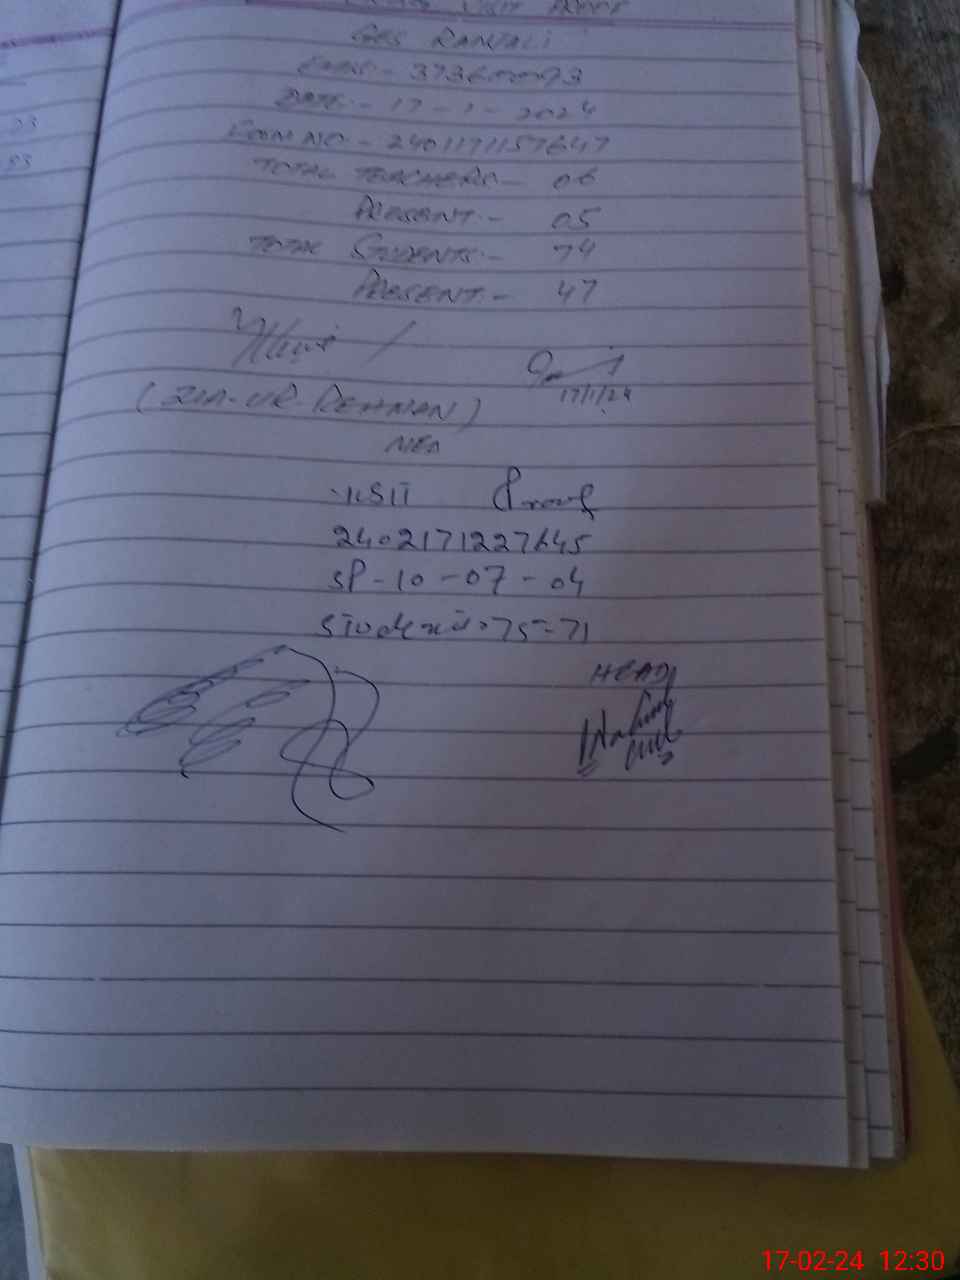 VISIT PROOF
GBS RANJALI
EMIS:- 37360093
DATE:- 17-1-2024
FORM NO:- 2401171157647
TOTAL TEACHERS:- 06
PRESENT:- 05
TOTAL STUDENTS:- 74
PRESENT:- 47
17/1/24
(ZIA-UR-REHMAN)
MEA
VISIT Proof
2402171227645
SP-10-07-04
Students:75=71
HEAD
17-02-24 12:30